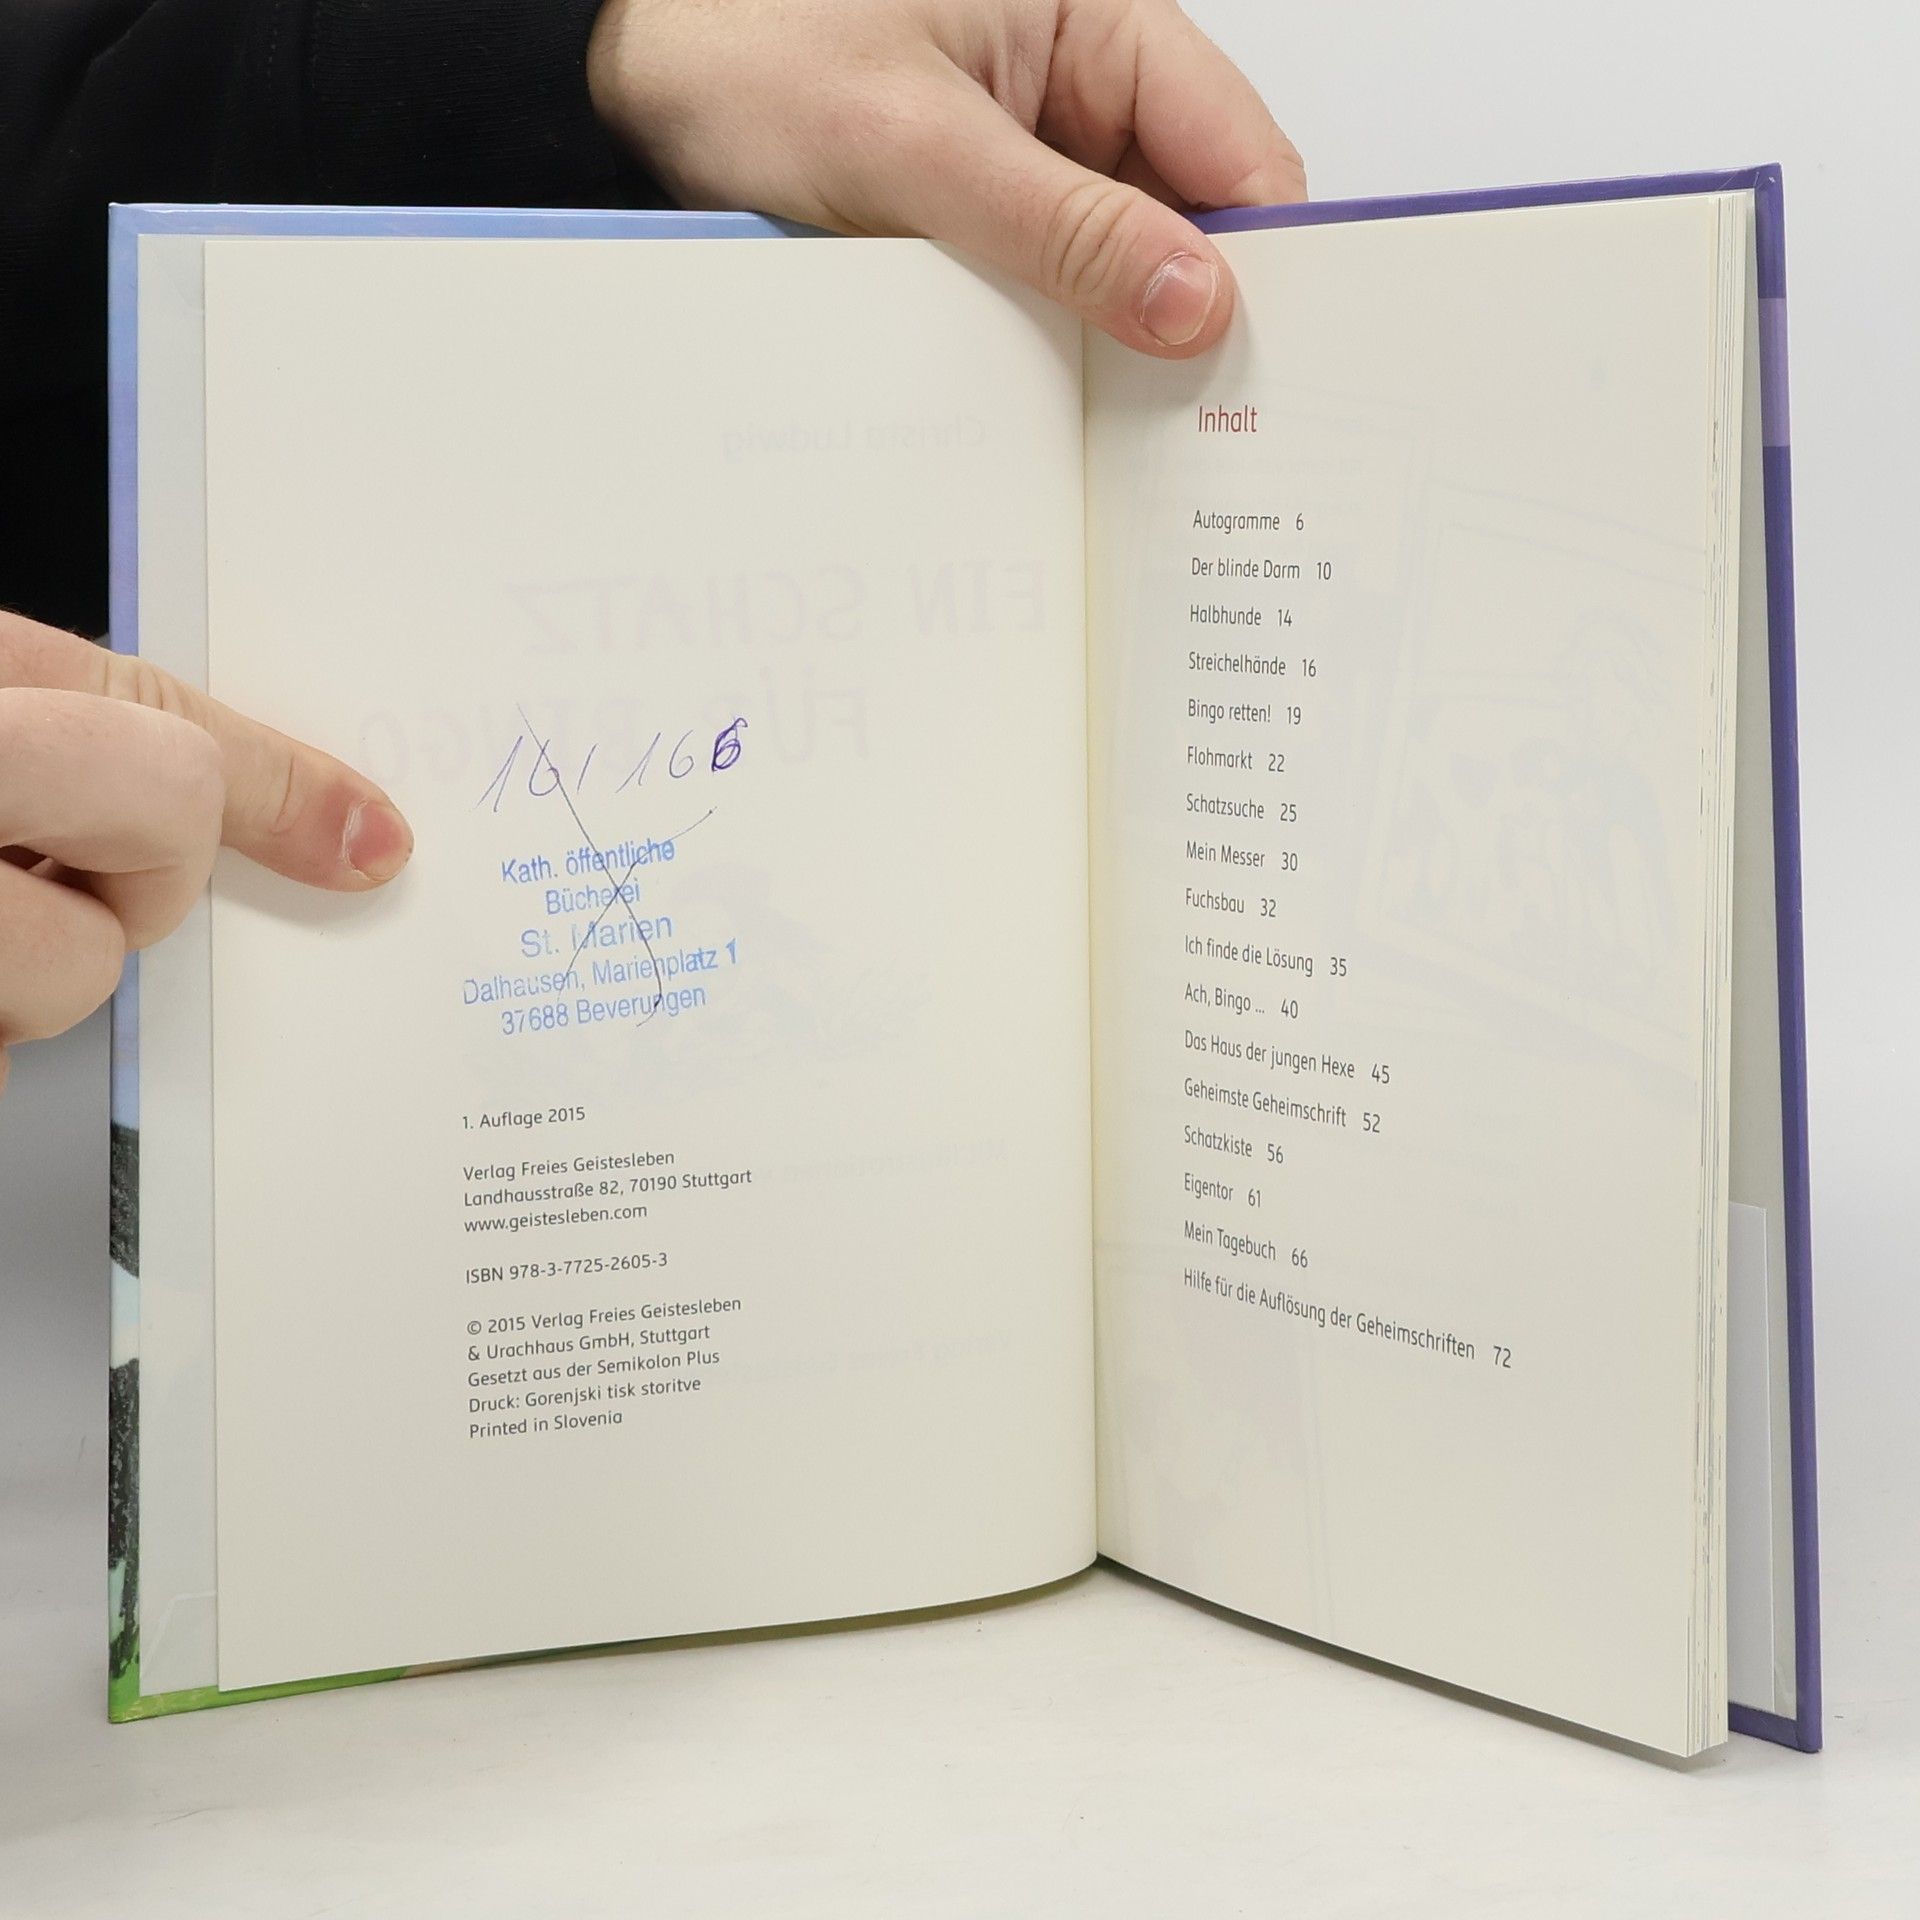 161 166
Kath. öffentliche
Bücherei
St. Marien
Dalhausen, Marienplatz 1
37688 Beverungen
1. Auflage 2015
Verlag Freies Geistesleben
Landhausstraße 82, 70190 Stuttgart
www.geistesleben.com
ISBN 978-3-7725-2605-3
© 2015 Verlag Freies Geistesleben
& Urachhaus GmbH, Stuttgart
Gesetzt aus der Semikolon Plus
Druck: Gorenjski tisk storitve
Printed in Slovenia
Inhalt
Autogramme 6
Der blinde Darm 10
Halbhunde 14
Streichelhände 16
Bingo retten! 19
Flohmarkt 22
Schatzsuche 25
Mein Messer 30
Fuchsbau 32
Ich finde die Lösung 35
Ach, Bingo ... 40
Das Haus der jungen Hexe 45
Geheimste Geheimschrift 52
Schatzkiste 56
Eigentor 61
Mein Tagebuch 66
Hilfe für die Auflösung der Geheimschriften 72